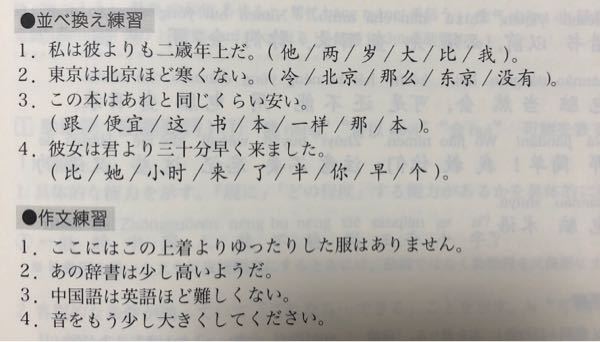 ●並べ換え練習
1．私は彼よりも二歳年上だ。( 他 / 两 / 岁 / 大 / 比 / 我 )。
2．東京は北京ほど寒くない。( 冷 / 北京 / 那么 / 东京 / 没有 )。
3．この本はあれと同じくらい安い。
( 跟 / 便宜 / 这 / 书 / 本 / 一样 / 那 / 本 )。
4．彼女は君より三十分早く来ました。
( 比 / 她 / 小时 / 来 / 了 / 半 / 你 / 早 / 个 )。
●作文練習
1．ここにはこの上着よりゆったりした服はありません。
2．あの辞書は少し高いようだ。
3．中国語は英語ほど難しくない。
4．音をもう少し大きくしてください。